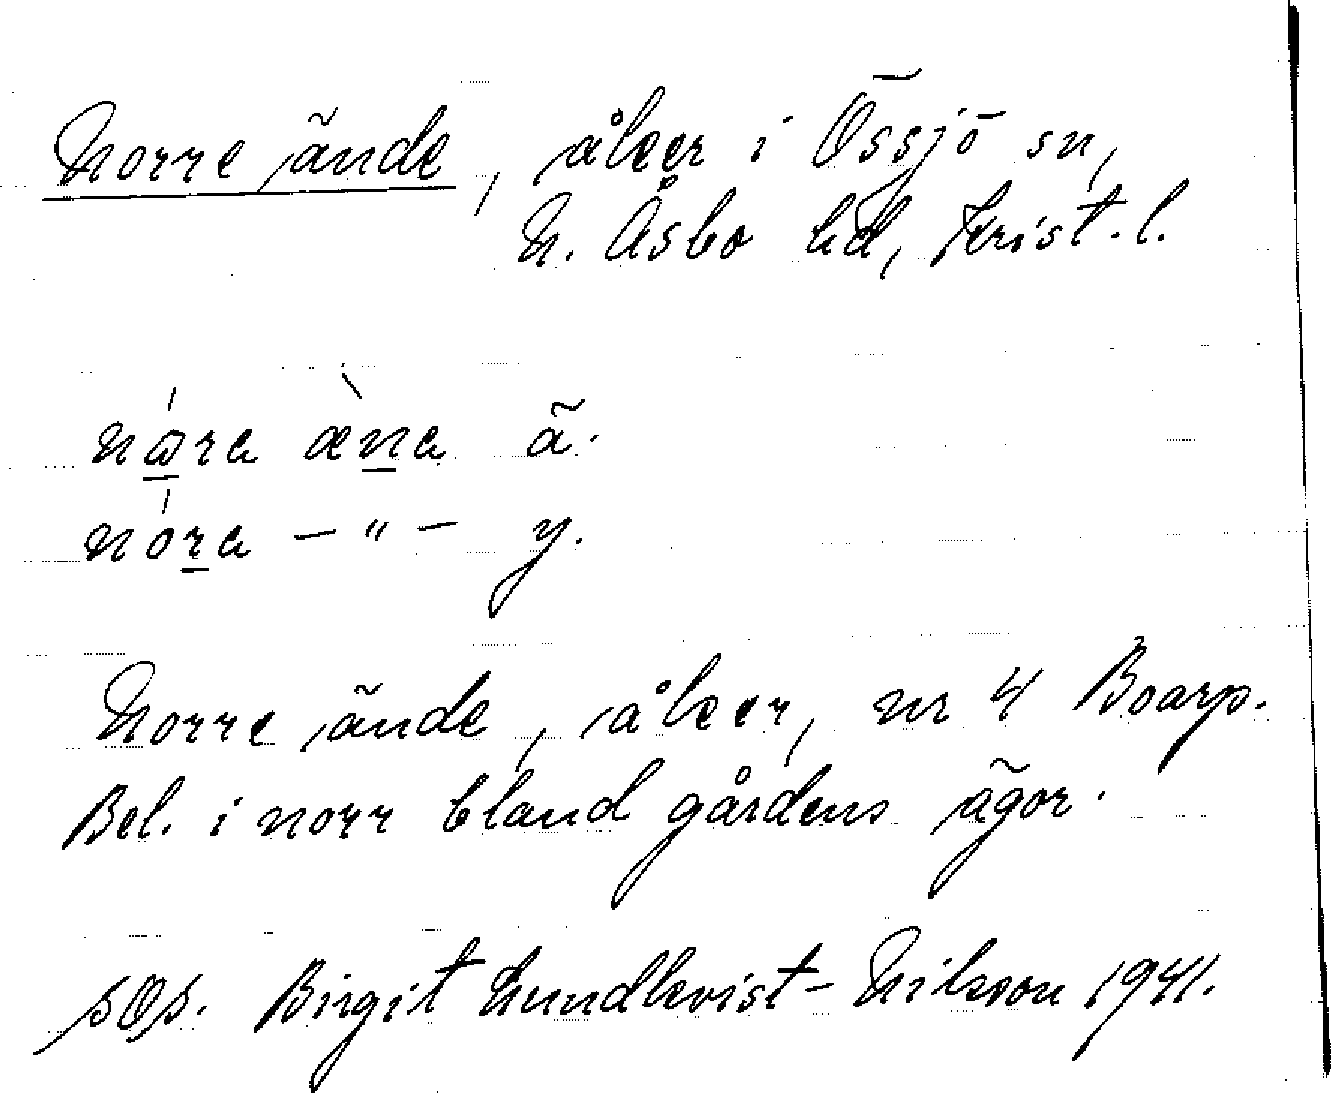 Norre ände, åker i Össjö sn,
N. Åsbo hd, Krist. l.
nåra äna ä.
nóra — " — y.
Norre ände, åker, nr 4 Boarp.
Bel. i norr bland gårdens ägor.
Birgit Lundkvist-Nilsson 1941.